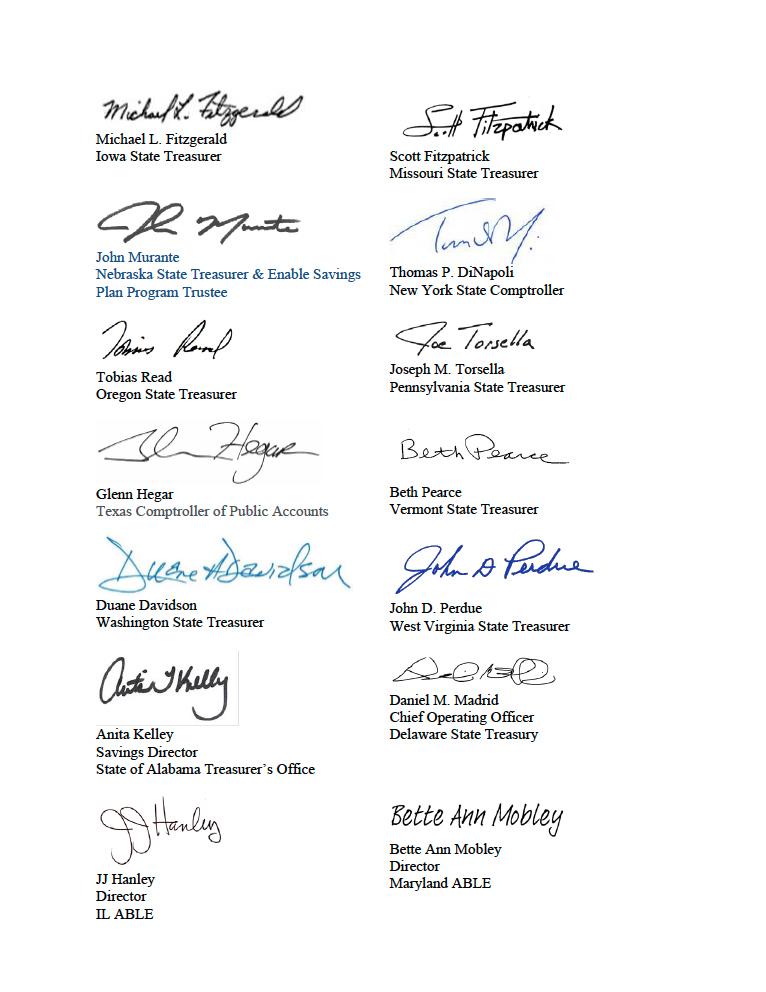 Michael L. Fitzgerald
Michael L. Fitzgerald
Iowa State Treasurer
Scott Fitzpatrick
Scott Fitzpatrick
Missouri State Treasurer
John Murante
Nebraska State Treasurer & Enable Savings
Plan Program Trustee
Thomas P. DiNapoli
New York State Comptroller
Tobias Read
Tobias Read
Oregon State Treasurer
Joe Torsella
Joseph M. Torsella
Pennsylvania State Treasurer
Glenn Hegar
Texas Comptroller of Public Accounts
Beth Pearce
Beth Pearce
Vermont State Treasurer
Duane A Davidson
Duane Davidson
Washington State Treasurer
John D Perdue
John D. Perdue
West Virginia State Treasurer
Anita Kelley
Savings Director
State of Alabama Treasurer’s Office
Daniel M. Madrid
Chief Operating Officer
Delaware State Treasury
JJ Hanley
JJ Hanley
Director
IL ABLE
Bette Ann Mobley
Bette Ann Mobley
Director
Maryland ABLE